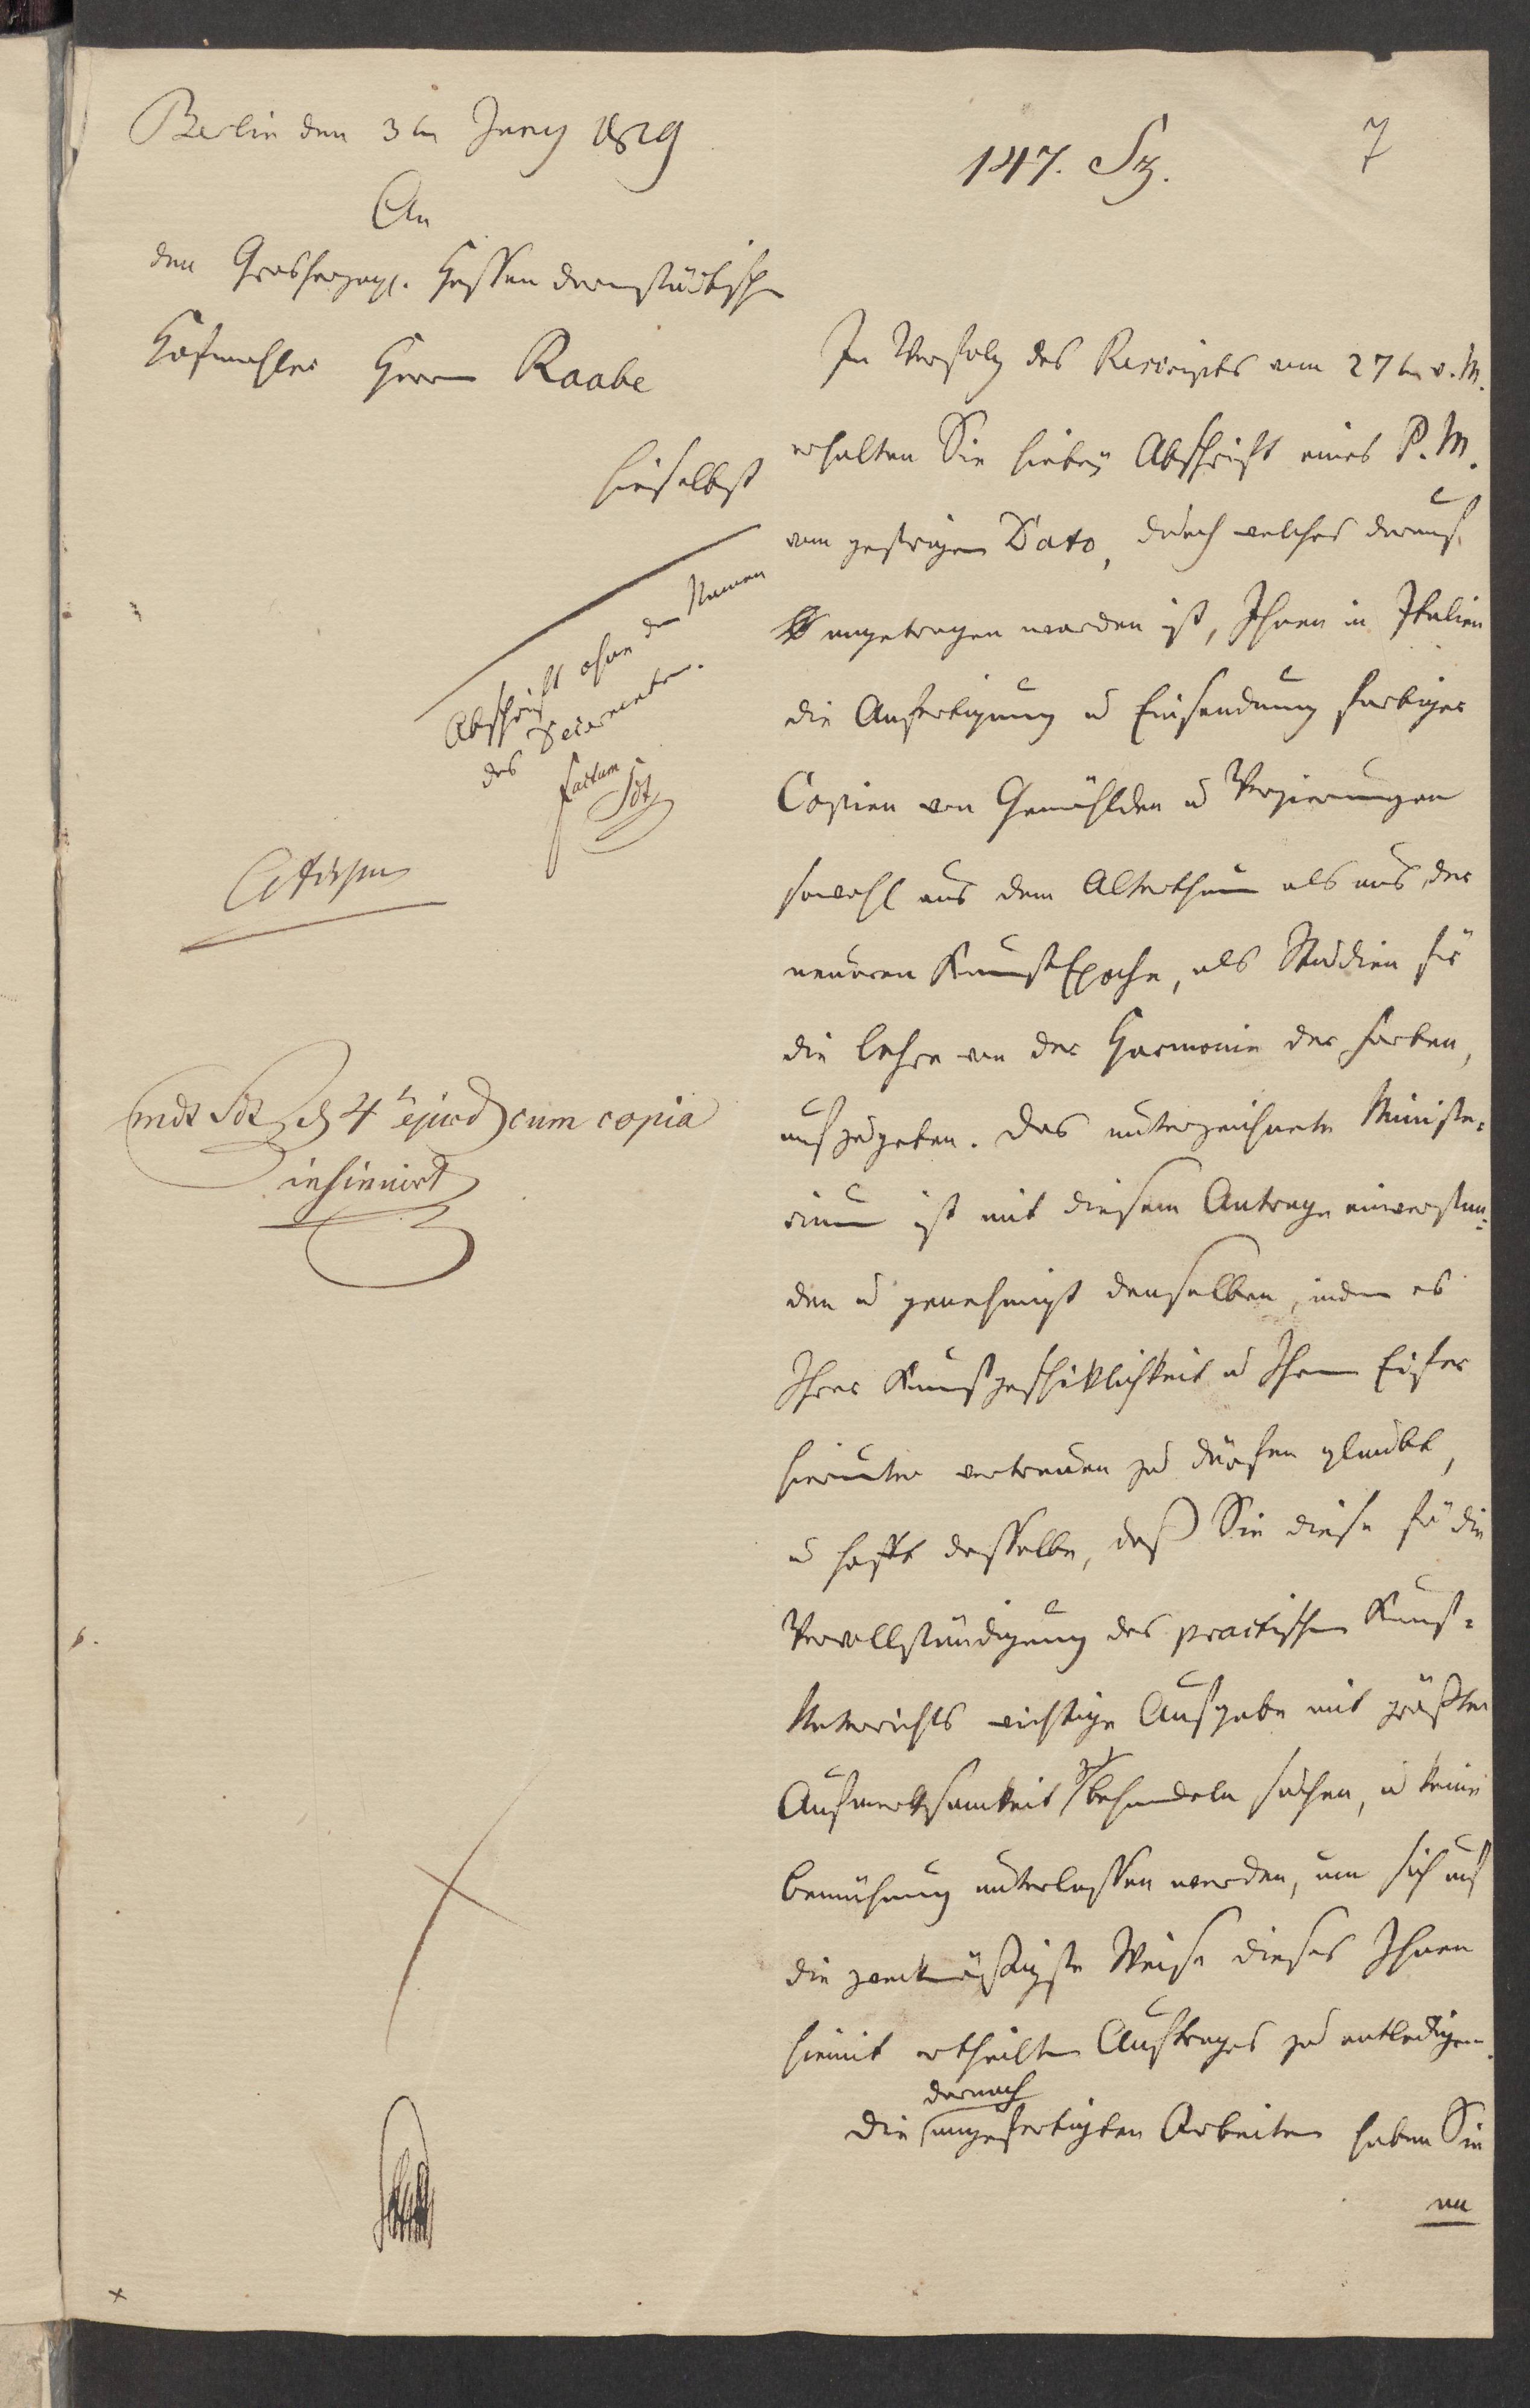 Berlin den 3tn Juny 1819
147. Sz.
7
An
den Grosherzogl. Hessendarmstädtischen
Hofmahler Herrn Raabe
hieselbst
Abschrift ohne den Namen
des Decernenten.
factum
Sdt
mdt Sdt d 4t ejusd cum copia
insinuirt
In Verfolg des Rescripts vom 27tn v. M.
erhalten Sie hiebey Abschrift eines P. M.
vom gestrigen Dato, durch welches darauf
angetragen worden ist, Ihnen in Italien
die Anfertigung u Einsendung farbiger
Copien von Gemählden u Verzierungen
sowohl aus dem Alterthum als aus der
neueren KunstEpoche, als Studien für
die Lehre von der Harmonie der Farben,
aufzugeben. Das unterzeichnete Ministe-
rium ist mit diesem Antrage einverstan-
den u genehmigt denselben, indem es
Ihrer Kunstgeschiklichkeit u Ihrem Eifer
hierunter vertrauen zu dürfen glaubt,
u hofft dasselbe, daß Sie diese für die
Vervollständigung des practischen Kunst-
Unterrichts wichtige Aufgabe mit größter
Aufmerksamkeit zu behandeln suchen, u keine
Bemühung unterlassen werden, um sich auf
die zweckmäßigste Weise dieses Ihnen
hiemit ertheilten Auftrages zu entledigen.
Die darnach angefertigten Arbeiten haben Sie
an